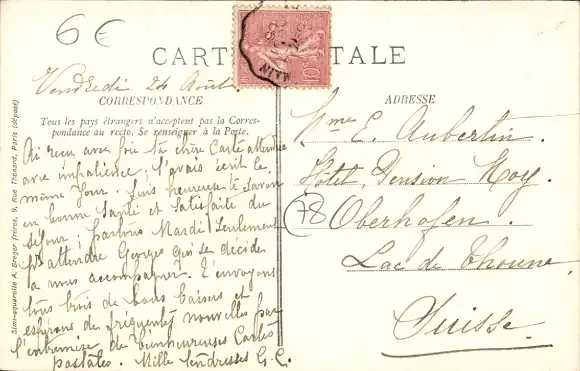 6 €
CARTE POSTALE
10c
Vendredi 24 Août
CORRESPONDANCE
Tous les pays étrangers n'acceptent pas la Corres-
pondance au recto. Se renseigner à la Poste.
Ai reçu avec joie ta chère Carte attendue
avec impatience ; t'avais écrit le
même Jour. Suis heureuse te savoir
en bonne Santé et Satisfaite du
séjour ; partons Mardi Seulement
pr attendre Georges qui se décide
à nous accompagner. T'envoyons
tous trois de bons baisers et
espérons de fréquentes nouvelles par
l'entremise de bienheureuses Cartes
postales. Mille tendresses G. C.
ADRESSE
Mme E. Aubertin.
Hôtel, Pension Moy.
Oberhofen.
Lac de Thoune
Suisse.
78
Simi-aquarelle A. Breger frères, 9, Rue Thénard, Paris (déposé)